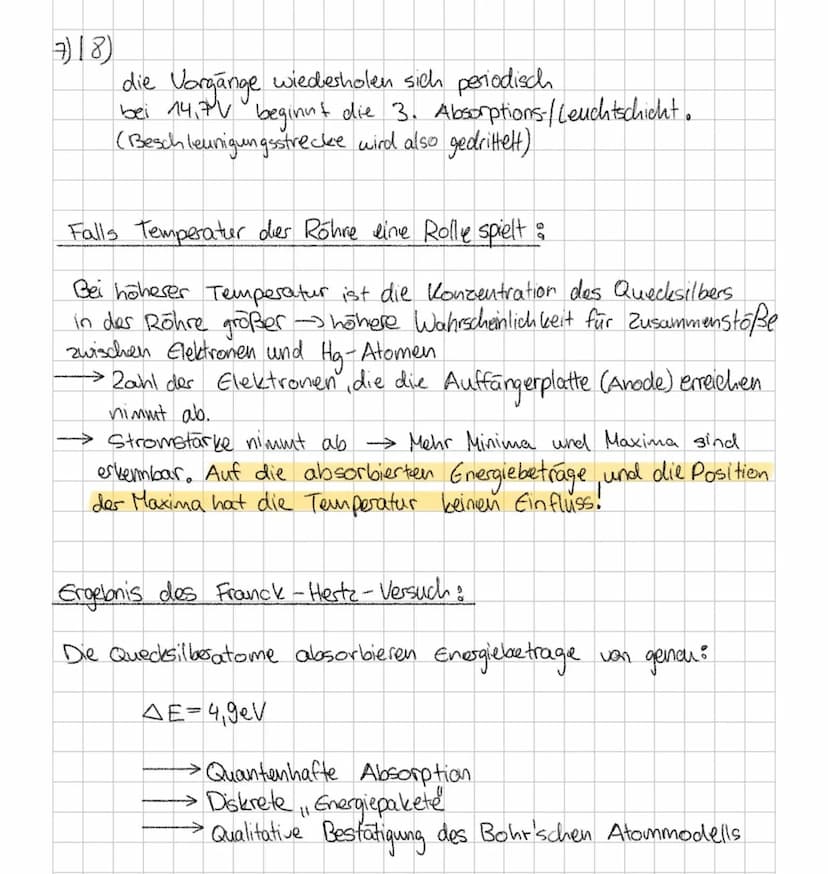 7)|8)
die Vorgänge wiederholen sich periodisch
bei 14,7V beginnt die 3. Absorptions-/Leuchtschicht.
(Beschleunigungsstrecke wird also gedrittelt)
Falls Temperatur der Röhre eine Rolle spielt:
Bei höherer Temperatur ist die Konzentration des Quecksilbers
in der Röhre größer → höhere Wahrscheinlichkeit für Zusammenstöße
zwischen Elektronen und Hg-Atomen
→ Zahl der Elektronen, die die Auffängerplatte (Anode) erreichen
nimmt ab.
→ Stromstärke nimmt ab → Mehr Minima und Maxima sind
erkennbar. Auf die absorbierten Energiebeträge, und die Position
der Maxima hat die Temperatur keinen Einfluss!
Ergebnis des Franck-Hertz-Versuch:
Die Quecksilberatome absorbieren Energiebetrage von genau:
ΔE = 4,9eV
→ Quantenhafte Absorption
→ Diskrete „Energiepakete"
→ Qualitative Bestätigung des Bohr'schen Atommodells